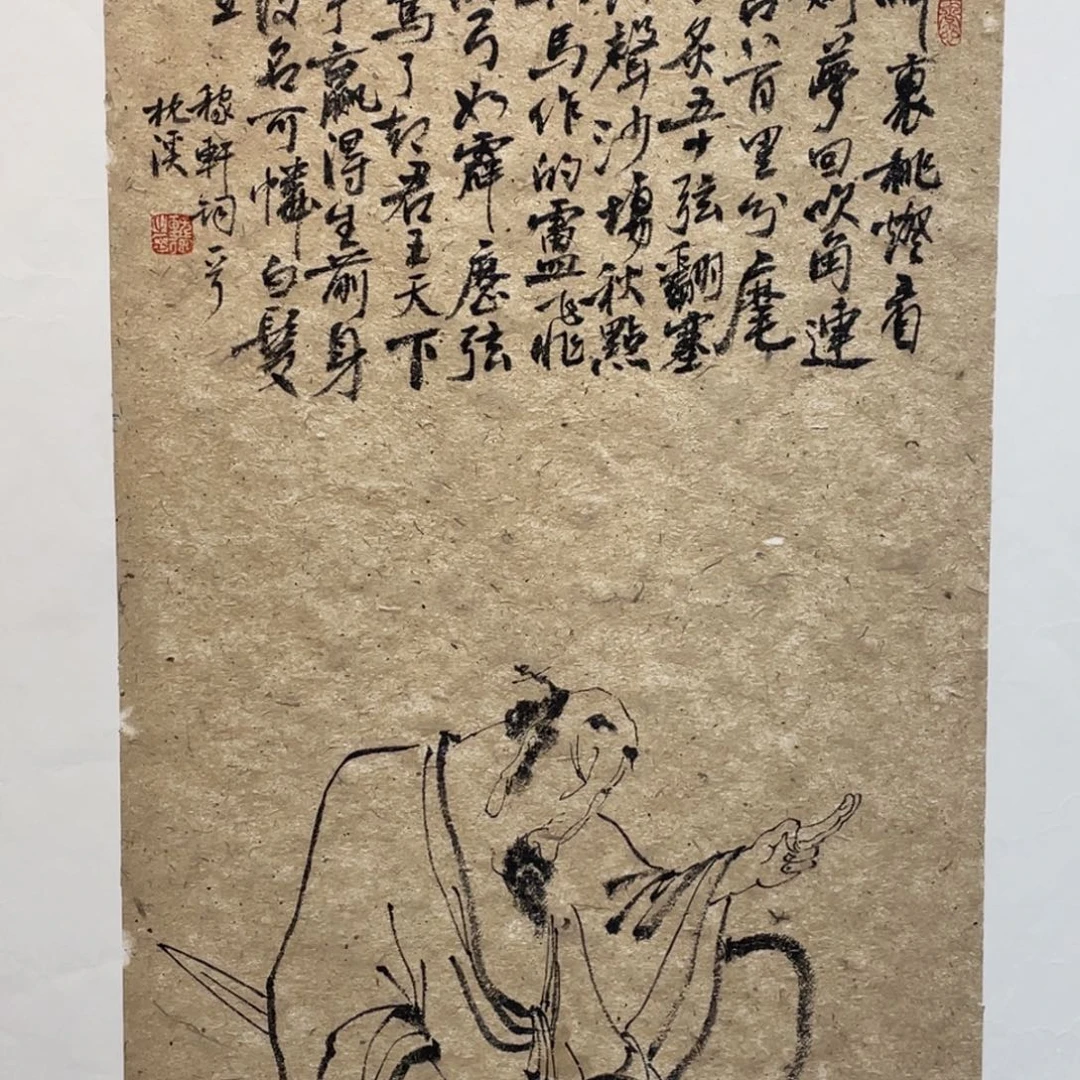 裏挑燈看
夢回吹角連
八百里分麾
炙五十弦翻塞
聲沙場秋點
馬作的盧飛快
弓如霹靂弦
驚了却君王天下
事贏得生前身
後名可憐白髮
生
稼軒詞一首
枕溪